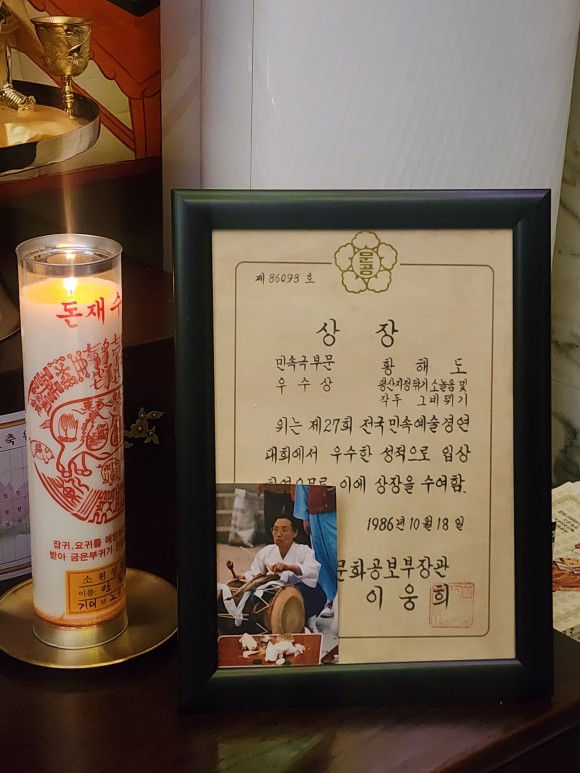 문공
제 86093 호
상 장
민속극부문 황 해 도
우 수 상 평산지정뒤기 소놀음 및
작두 그네뛰기
위는 제27회 전국민속예술경연
대회에서 우수한 성적으로 입상
이에 상장을 수여함.
1986년 10월 18일
문화공보부장관
이 웅 희
돈재수
잡귀,요귀를
받아 금은부귀가
소원
이름:
축